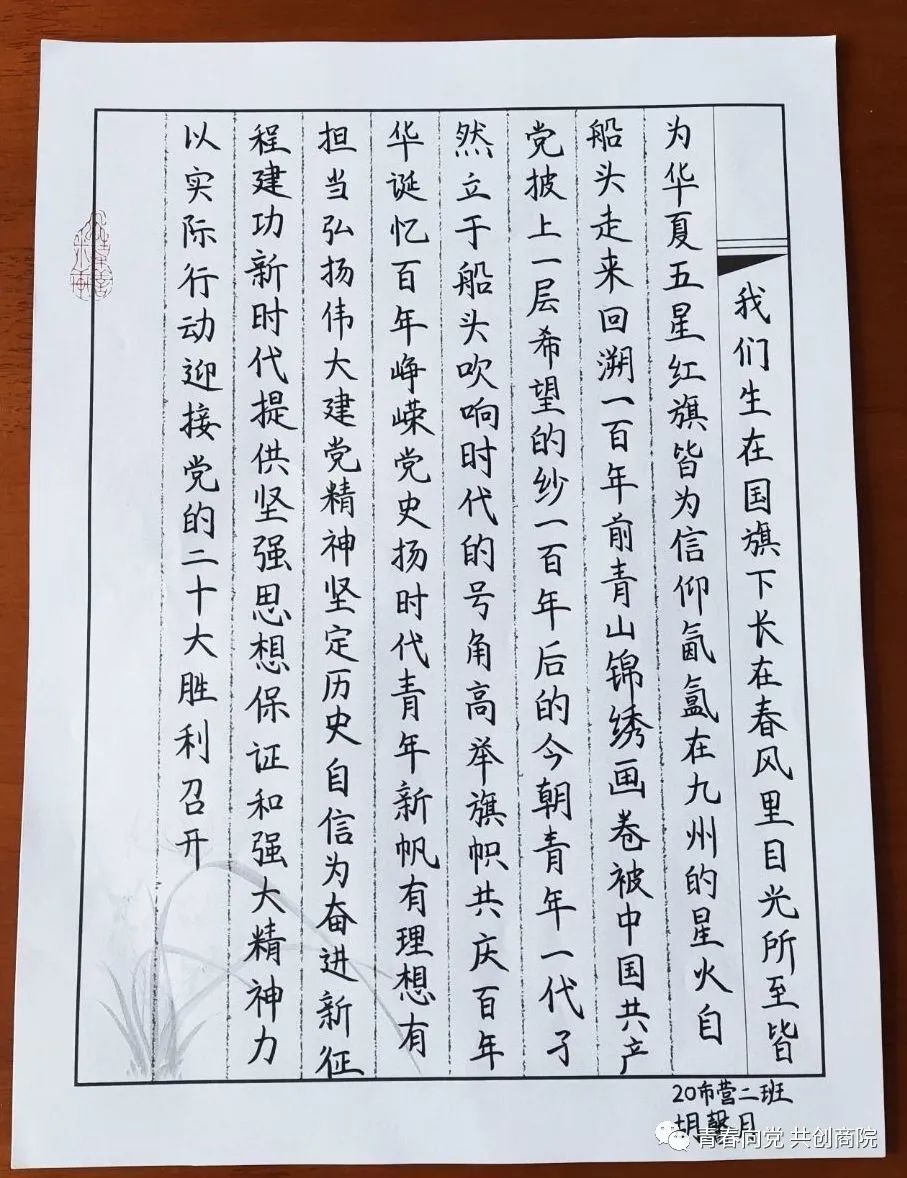 我们生在国旗下长在春风里目光所至皆
为华夏五星红旗皆为信仰氤氲在九州的星火自
船头走来回溯一百年前青山锦绣画卷被中国共产
党披上一层希望的纱一百年后的今朝青年一代孑
然立于船头吹响时代的号角高举旗帜共庆百年
华诞忆百年峥嵘党史扬时代青年新帆有理想有
担当弘扬伟大建党精神坚定历史自信为奋进新征
程建功新时代提供坚强思想保证和强大精神力
以实际行动迎接党的二十大胜利召开
20市营二班
胡馨月
青春向党 共创商院